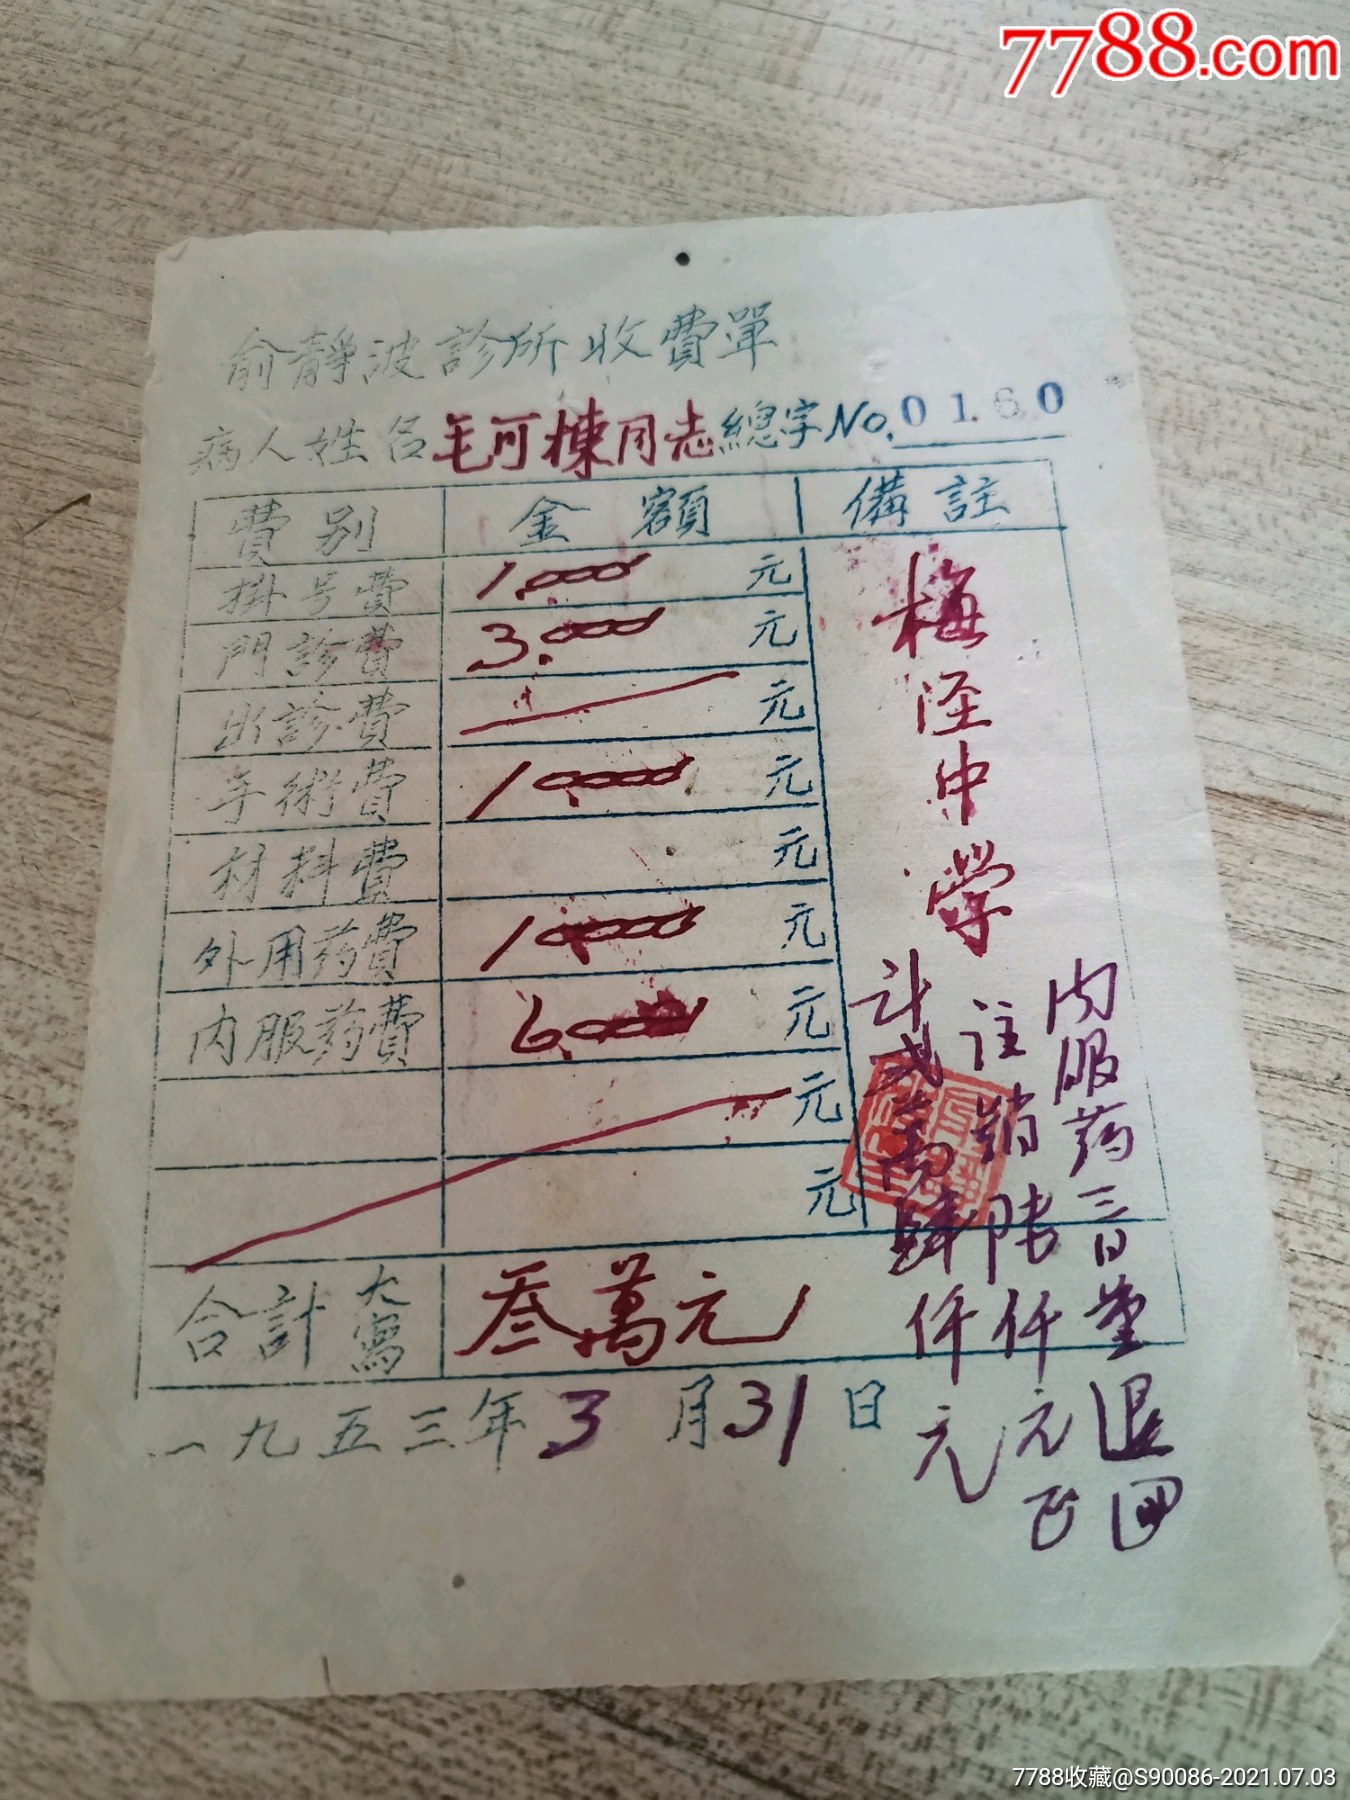 7788.com
俞靜波診所收費單
病人姓名毛可棟同志總字No.0160
費別 金額 備註
掛号費 1.000 元
門診費 3.000 元
出診費 元
手術費 10.000 元
材料費 元
外用药費 10.000 元
内服药費 6.000 元
元
元
合計大寫 叁萬元
梅 中学
内服药三日量退回
註銷陸仟元正
計弍萬肆仟元
一九五三年3月31日
7788收藏@S90086-2021.07.03